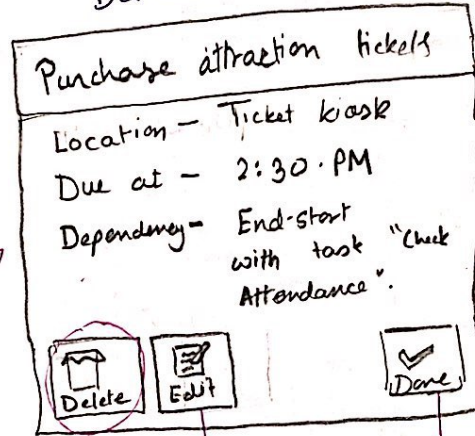 Purchase attraction tickets
Location - Ticket kiosk
Due at - 2:30 PM
Dependency - End-start
with task "Check
Attendance".
Delete
Edit
Done